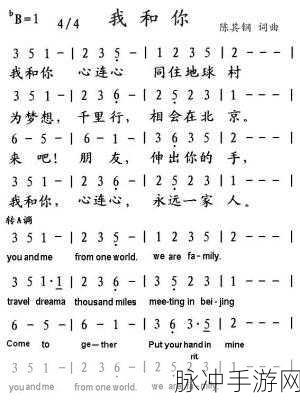 ♭B=1 4/4 我和你 陈其钢 词曲
3 5 1 - | 2 3 5 - | 1 2 3 5 | 2 - - - |
我和你 心连心 同住地球 村
3 5 1 - | 2 3 6 - | 2 5 2 3 | 1 - - - |
为梦想, 千里行, 相会在北 京。
6 - 5 - | 6 - 1 - | 3 6 3 5 | 2 - - - |
来 吧! 朋 友, 伸出你的 手,
3 5 1 - | 2 3 5 - | 2 5 2 3 | 1 - - - |
我和你, 心连心, 永远一家 人。
转A调
3 5 1 - | 2 3 5 - | 1 2 3 5 | 2 - - - |
you and me from one world. we are fa-mily.
3 5 1·1 | 2 3 6 - | 2 5 2 3 | 1 - - - |
travel dreama thousand miles mee-ting in bei-jing
6 - 5 - | 6 - 1 - | 3 6 3·5 | 2 - - - |
Come to ge-ther Put your hand in mine
rit.
3 5 1 - | 2 3 5 - | 2 5 2 3 | 1 - - - |
you and me from one world. we are fa-mily.
脉冲手游网